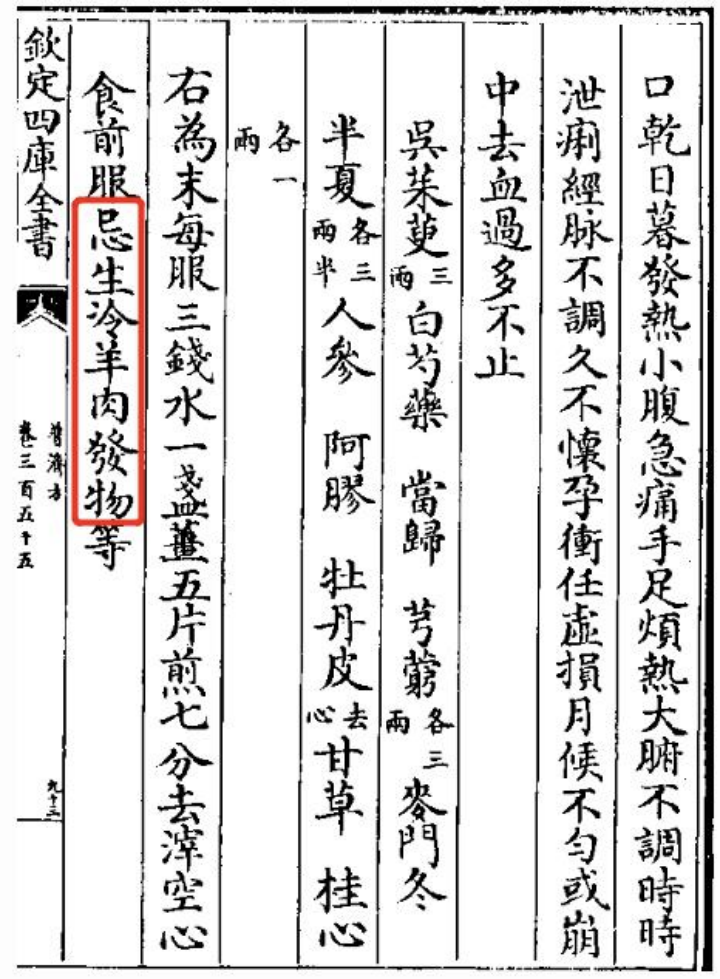 口乾日暮發熱小腹急痛手足煩熱大腑不調時時
泄痢經脉不調久不懷孕衝任虛損月候不勻或崩
中去血過多不止
吳茱萸三兩 白芍藥 當歸 芎藭各三兩 麥門冬
半夏各三兩半 人參 阿膠 牡丹皮去心 甘草 桂心
各一兩
右為末每服三錢水一盞薑五片煎七分去滓空心
食前服忌生冷羊肉發物等
欽定四庫全書
普濟方
卷三百五十五
九十三